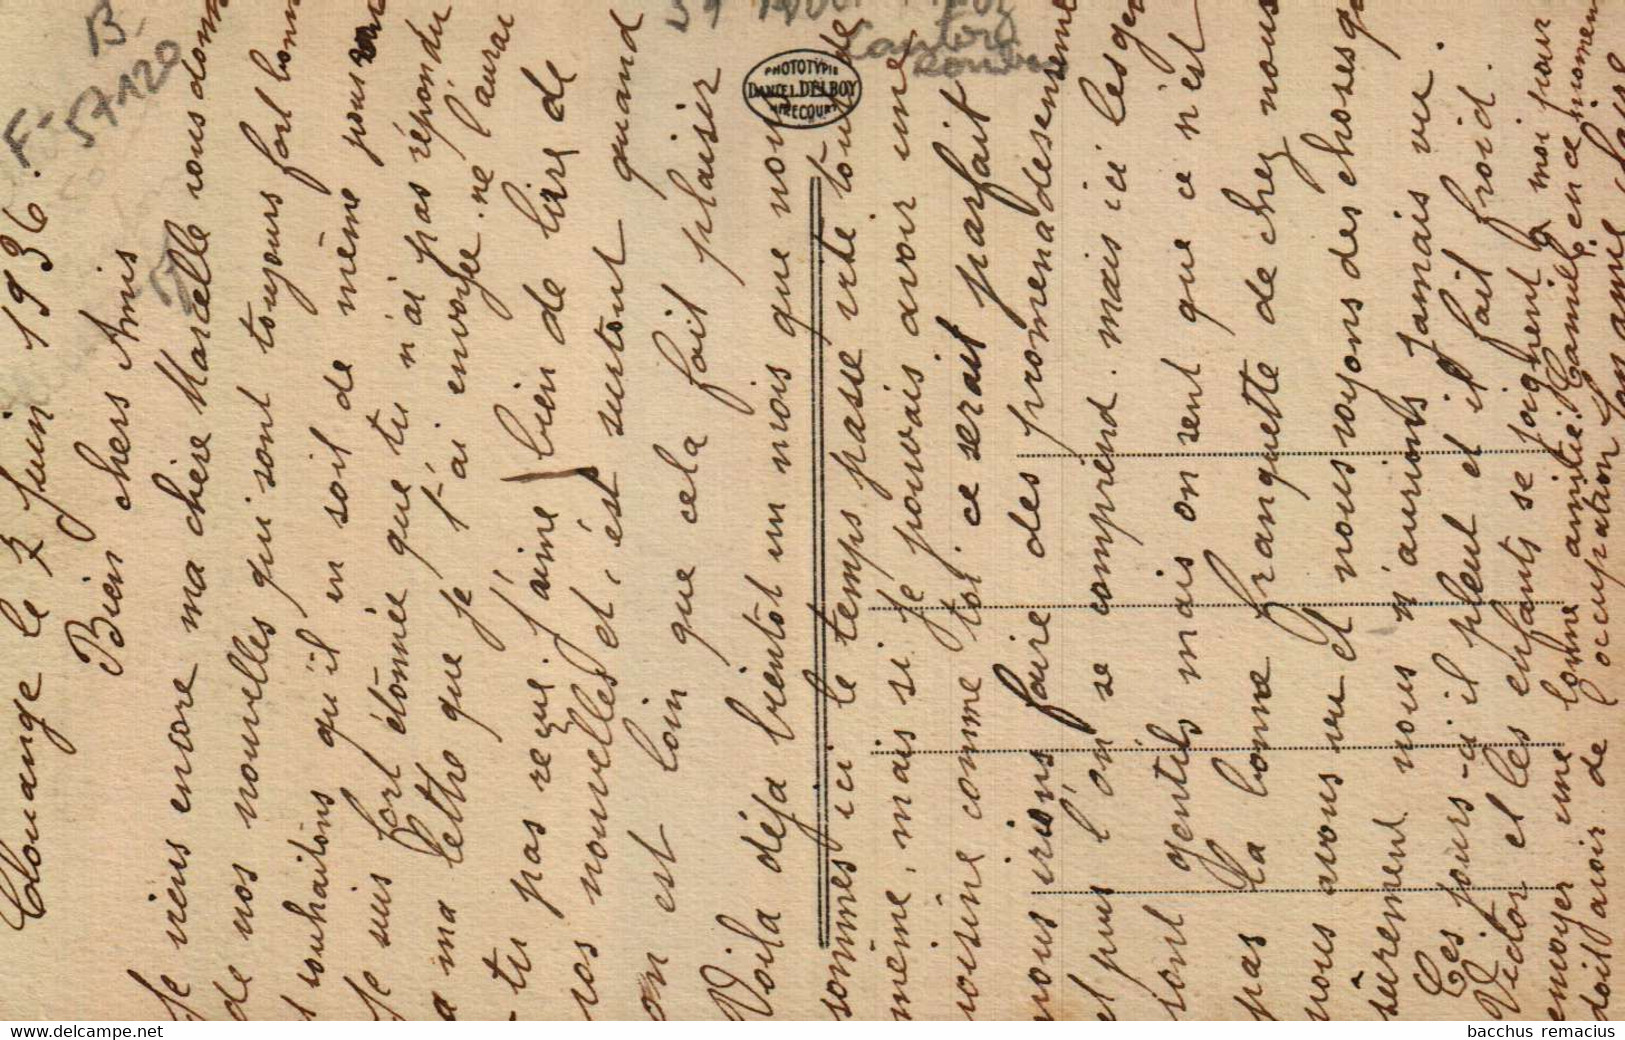 Clouange le 7 Juin 1936.
Bien chers Amis
Je viens encore ma chère Marcelle vous donn
de nos nouvelles qui sont toujours fort bonn
et souhaitons qu'il en soit de même pour vous
Je suis fort étonnée que tu n'ai pas répondu
a ma lettre que je t'ai envoyée. ne l'aurai
-tu pas reçue, j'aime bien de lire de
vos nouvelles et, c'est surtout quand
on est loin que cela fait plaisir
Voila déja bientôt un mois que nous
sommes ici le temps passe vite tout de
même, mais si je pouvais avoir une
voisine comme toi. ce serait parfait
nous irions faire des promenades ensemble
et puis l'on se comprend. mais ici les gens
sont gentils mais on sent que ce n'est
pas la bonne franquette de chez nous
nous avons vu et nous voyons des choses que
sûrement nous n'aurions jamais vu.
Ces jours-ci il pleut et il fait froid.
Victor et les enfants se joignent à moi pour
envoyer une bonne amitié. Camille en ce moment
doit avoir de l'occupation
B.
F-57120
PHOTOTYPIE
DANIEL DELBOY
MIRECOURT
bacchus remacius
www.delcampe.net